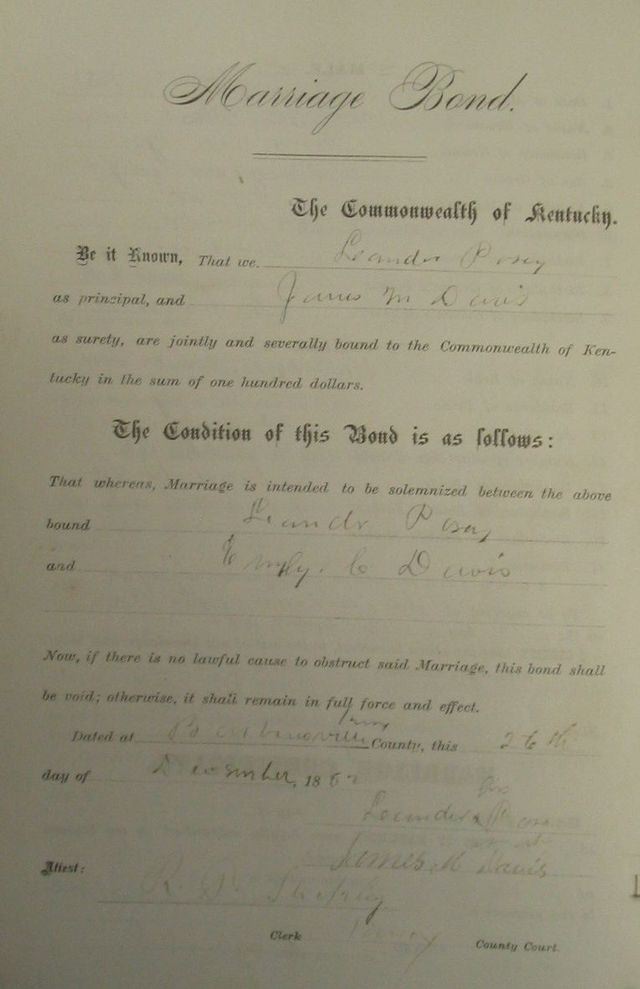 Marriage Bond.
The Commonwealth of Kentucky.
Be it Known, That we Leander Posey
as principal, and James M Davis
as surety, are jointly and severally bound to the Commonwealth of Ken-
tucky in the sum of one hundred dollars.
The Condition of this Bond is as follows:
That whereas, Marriage is intended to be solemnized between the above
bound Leander Posey
and Emily. C Davis
Now, if there is no lawful cause to obstruct said Marriage, this bond shall
be void; otherwise, it shall remain in full force and effect.
Dated at County, this 26th
day of December, 186
his
Leander Posey
James M Davis
Attest:
R.
Clerk County Court.